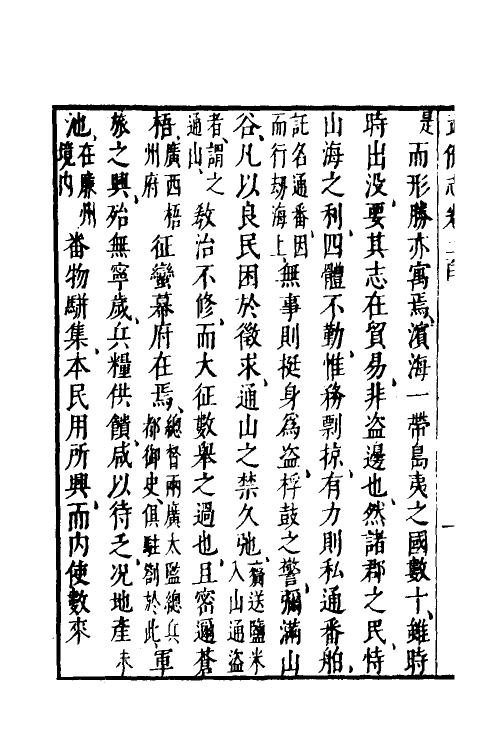 武備志卷二百
一
是而形勝亦寓焉濱海一帶島夷之國數十雖時
時出没要其志在貿易非盜邊也然諸郡之民恃
山海之利四體不勤惟務剽掠有力則私通番舶
託名通番因而行刼海上無事則挺身爲盜桴鼓之警彌滿山
谷凡以良民困於徵求通山之禁久弛齎送鹽米入山通盜
者謂之通山教治不修而大征數舉之過也且密邇蒼
梧廣西梧州府征蠻幕府在焉總督兩廣太監總兵都御史俱駐劄於此軍
旅之興殆無寧歲兵糧供饋咸以待乏况地産未
池在廉州境内番物駢集本民用所興而内使數來